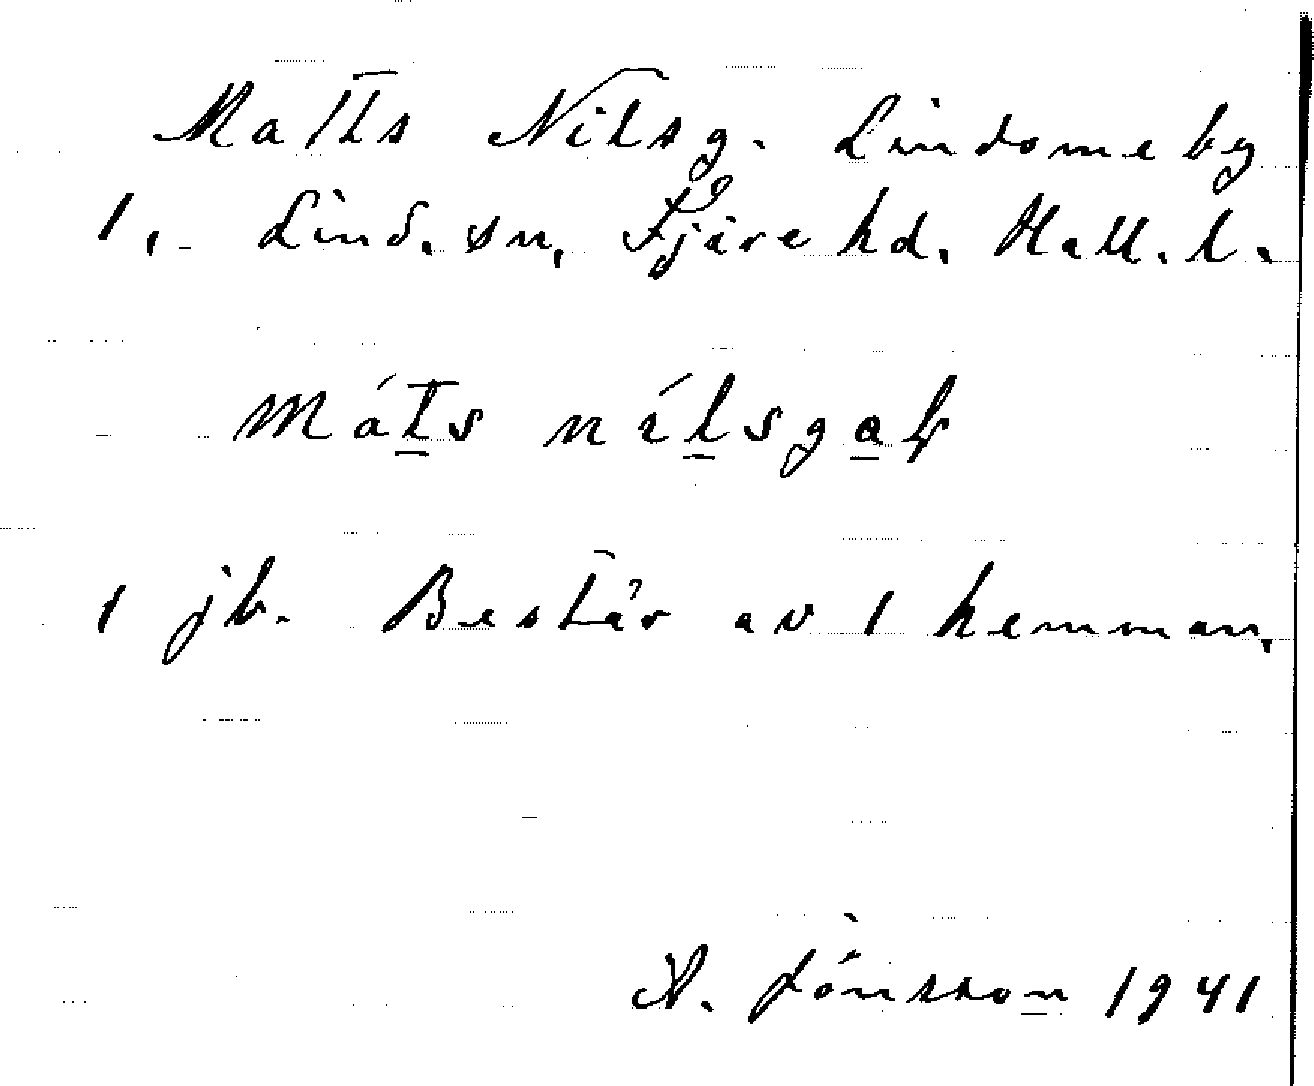 Matts Nilsg. Lindome by
1,- Lind. sn, Fjäre hd. Hall. l.
máts nílsgaɽ
1 jb. Består av 1 hemman.
A. Jónsson 1941